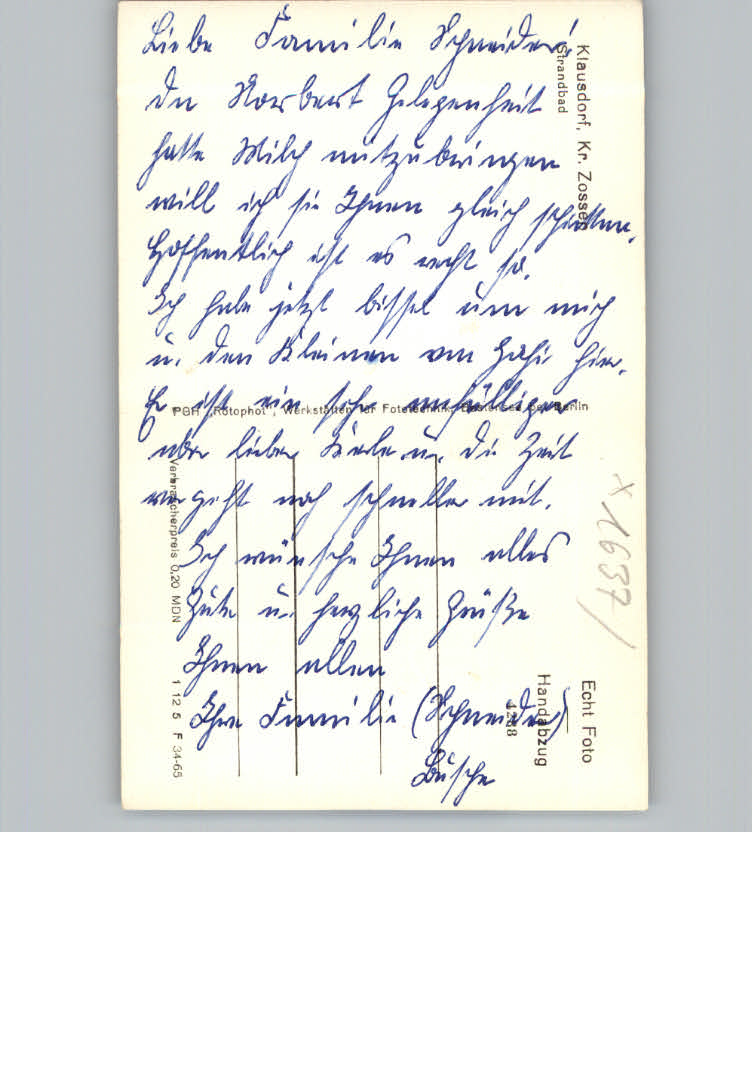 Liebe Familie Schneider!
da Norbert Gelegenheit
hatte Milch mitzubringen
will ich sie Ihnen gleich schicken.
Hoffentlich ist es recht so.
Ich habe jetzt bissel um mich
u. den Kleinen von hier.
Er ist ein sehr
aber lieber u. die Zeit
vergeht noch schneller mit.
Ich wünsche Ihnen alles
Gute u. herzliche Grüße
Ihnen allen
Ihre Familie (Schneider)
Busche
Klausdorf, Kr. Zossen
Strandbad
PGH „Rotophot", Werkstätten für Fototechnik, Berlin
Verbraucherpreis 0,20 MDN 1 12 5 F 34-65
Echt Foto
Handabzug
x 1637/